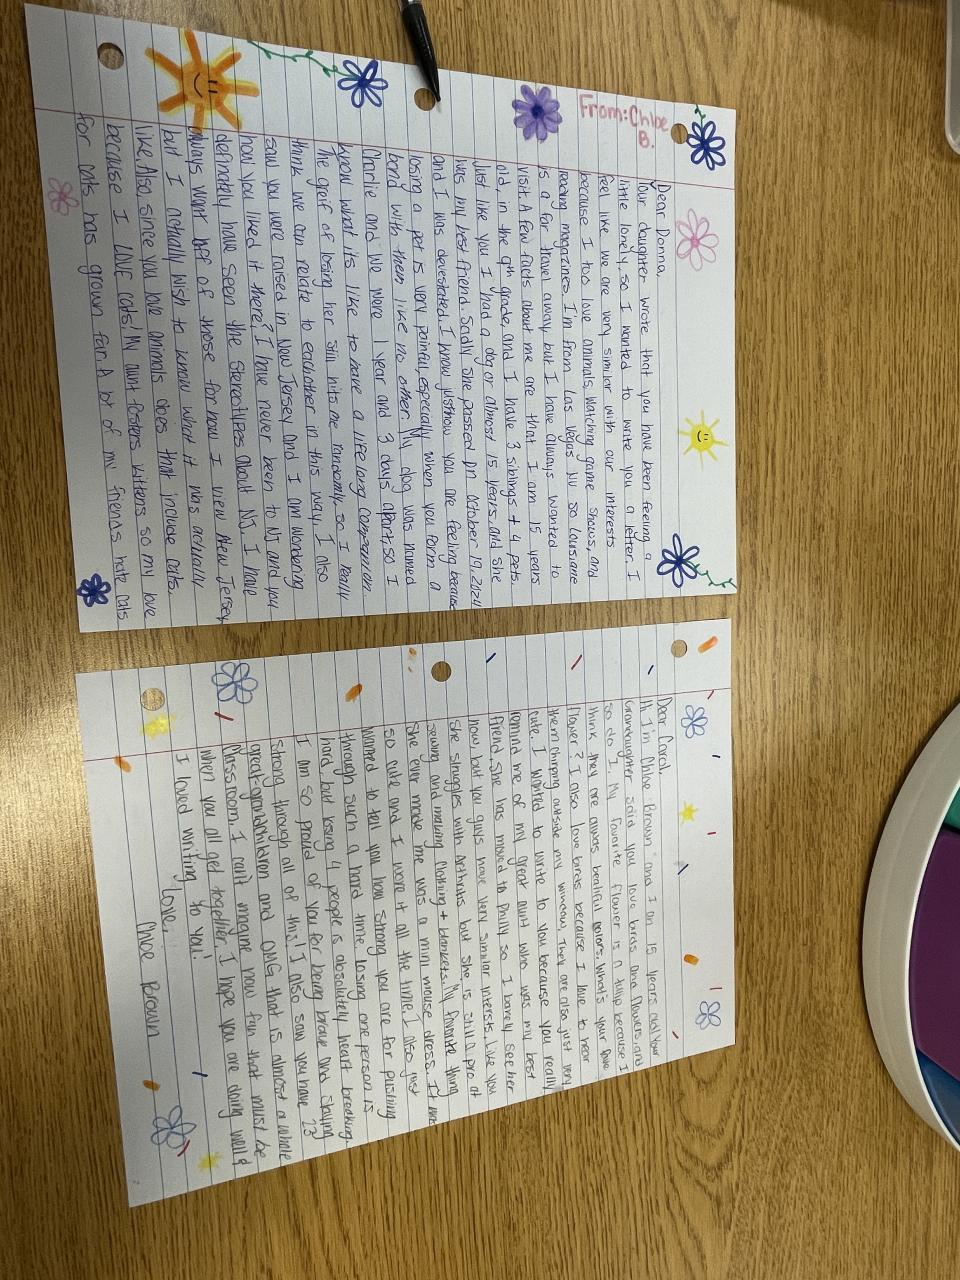 From: Chloe
B.
Dear Donna,
Your daughter wrote that you have been feeling a
little lonely, so I wanted to write you a letter. I
feel like we are very similar with our interests
because I too love animals, watching game shows, and
reading magazines. I'm from Las Vegas NV so Louisiane
is a far travel away but I have always wanted to
visit. A few facts about me are that I am 15 years
old, in the 9th grade, and I have 3 siblings + 4 pets.
Just like you I had a dog or almost 15 years, and she
was my best friend. Sadly she passed on October 19, 2024
and I was devestated. I know just how you are feeling because
losing a pet is very painful, especially when you form a
bond with them like no other. My dog was named
Charlie and we were 1 year and 3 days apart, so I
know what its like to have a life long companion.
The greif of losing her still hits me randomly, so I really
think we can relate to eachother in this way. I also
saw you were raised in New Jersey and I am wondering
how you liked it there? I have never been to NJ and you
definately have seen the stereotipes about NJ. I have
always went off of those for how I view New Jersey
but I actually wish to know what it was actually
like. Also, since you love animals does that include cats.
because I LOVE cats! My aunt fosters kittens so my love
for cats has grown far. A lot of my friends hate cats
Dear Carol,
Hi I'm Chloe Brown and I an 15 years old! Your
Grandaughter said you love birds and flowers, and
so do I. My favorite flower is a tulip because I
think they are always beatiful colors. What's your fave
flower? I also love birds because I love to hear
them chirping outside my window, they are also just very
cute. I wanted to write to you because you really
remind me of my great aunt who was my best
friend. She has moved to Philly so I barely see her
now but you guys have very similar intersts. Like you
she struggles with arthritis but she is still a pro at
sewing and making clothing + blankets. My favorite thing
she ever made me was a mini mouse dress. It was
so cute and I wore it all the time. I also just
wanted to tell you how strong you are for pushing
through such a hard time. losing one person is
hard, but losing 4 people is absolutely heart breaking.
I am so proud of you for being brave and staying
strong through all of this! I also saw you have 23
great-grandchildren and OMG that is almost a whole
classroom. I can't imagine how fun that must be
when you all get together. I hope you are doing well &
I loved writing to you!
Love,
Chloe Brown